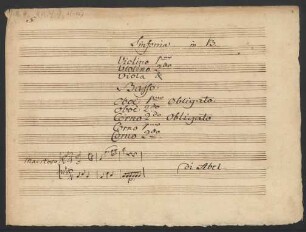 Sinfonia in B.
Violino 1mo
Violino 2do
Viola &
Basso.
Oboe 1mo Obligato
Oboe 2do
Corno 2do Obligato
Corno 1mo
Corno 2do
di Abel